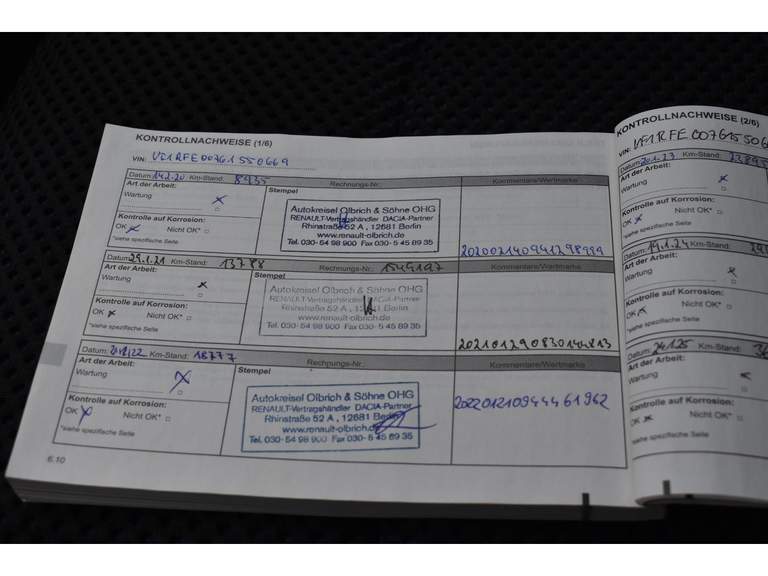 KONTROLLNACHWEISE (1/6)
VIN: VF1RFE00761550669
Datum: 14.2.20 Km-Stand: 8935 Rechnungs-Nr.: Kommentare/Wertmarke
Art der Arbeit: Stempel
Wartung
Kontrolle auf Korrosion:
OK Nicht OK*
*siehe spezifische Seite
Autokreisel Olbrich & Söhne OHG
RENAULT-Vertragshändler DACIA-Partner
Rhinstraße 52 A , 12681 Berlin
www.renault-olbrich.de
Tel. 030- 54 98 900 Fax 030- 5 45 89 35
Datum: 29.1.21 Km-Stand: 13788 Rechnungs-Nr.: Kommentare/Wertmarke
Art der Arbeit: Stempel
Wartung
Kontrolle auf Korrosion:
OK Nicht OK*
*siehe spezifische Seite
Autokreisel Olbrich & Söhne OHG
RENAULT-Vertragshändler DACIA-Partner
Rhinstraße 52 A , 12681 Berlin
www.renault-olbrich.de
Tel. 030- 54 98 900 Fax 030- 5 45 89 35
Datum: Km-Stand: 18777 Rechnungs-Nr.: Kommentare/Wertmarke
Art der Arbeit: Stempel
Wartung
Kontrolle auf Korrosion:
OK Nicht OK*
*siehe spezifische Seite
Autokreisel Olbrich & Söhne OHG
RENAULT-Vertragshändler DACIA-Partner
Rhinstraße 52 A , 12681 Berlin
www.renault-olbrich.de
Tel. 030- 54 98 900 Fax 030- 5 45 89 35
6.10
KONTROLLNACHWEISE (2/6)
VIN: VF1RFE007615506
Datum: 20.1.23 Km-Stand: 23895
Art der Arbeit:
Wartung
Kontrolle auf Korrosion:
OK Nicht OK*
*siehe spezifische Seite
Datum: 19.1.24 Km-Stand:
Art der Arbeit:
Wartung
Kontrolle auf Korrosion:
OK Nicht OK*
*siehe spezifische Seite
Datum: 24.1.25 Km-Stand:
Art der Arbeit:
Wartung
Kontrolle auf Korrosion:
OK Nicht OK*
*siehe spezifische Seite